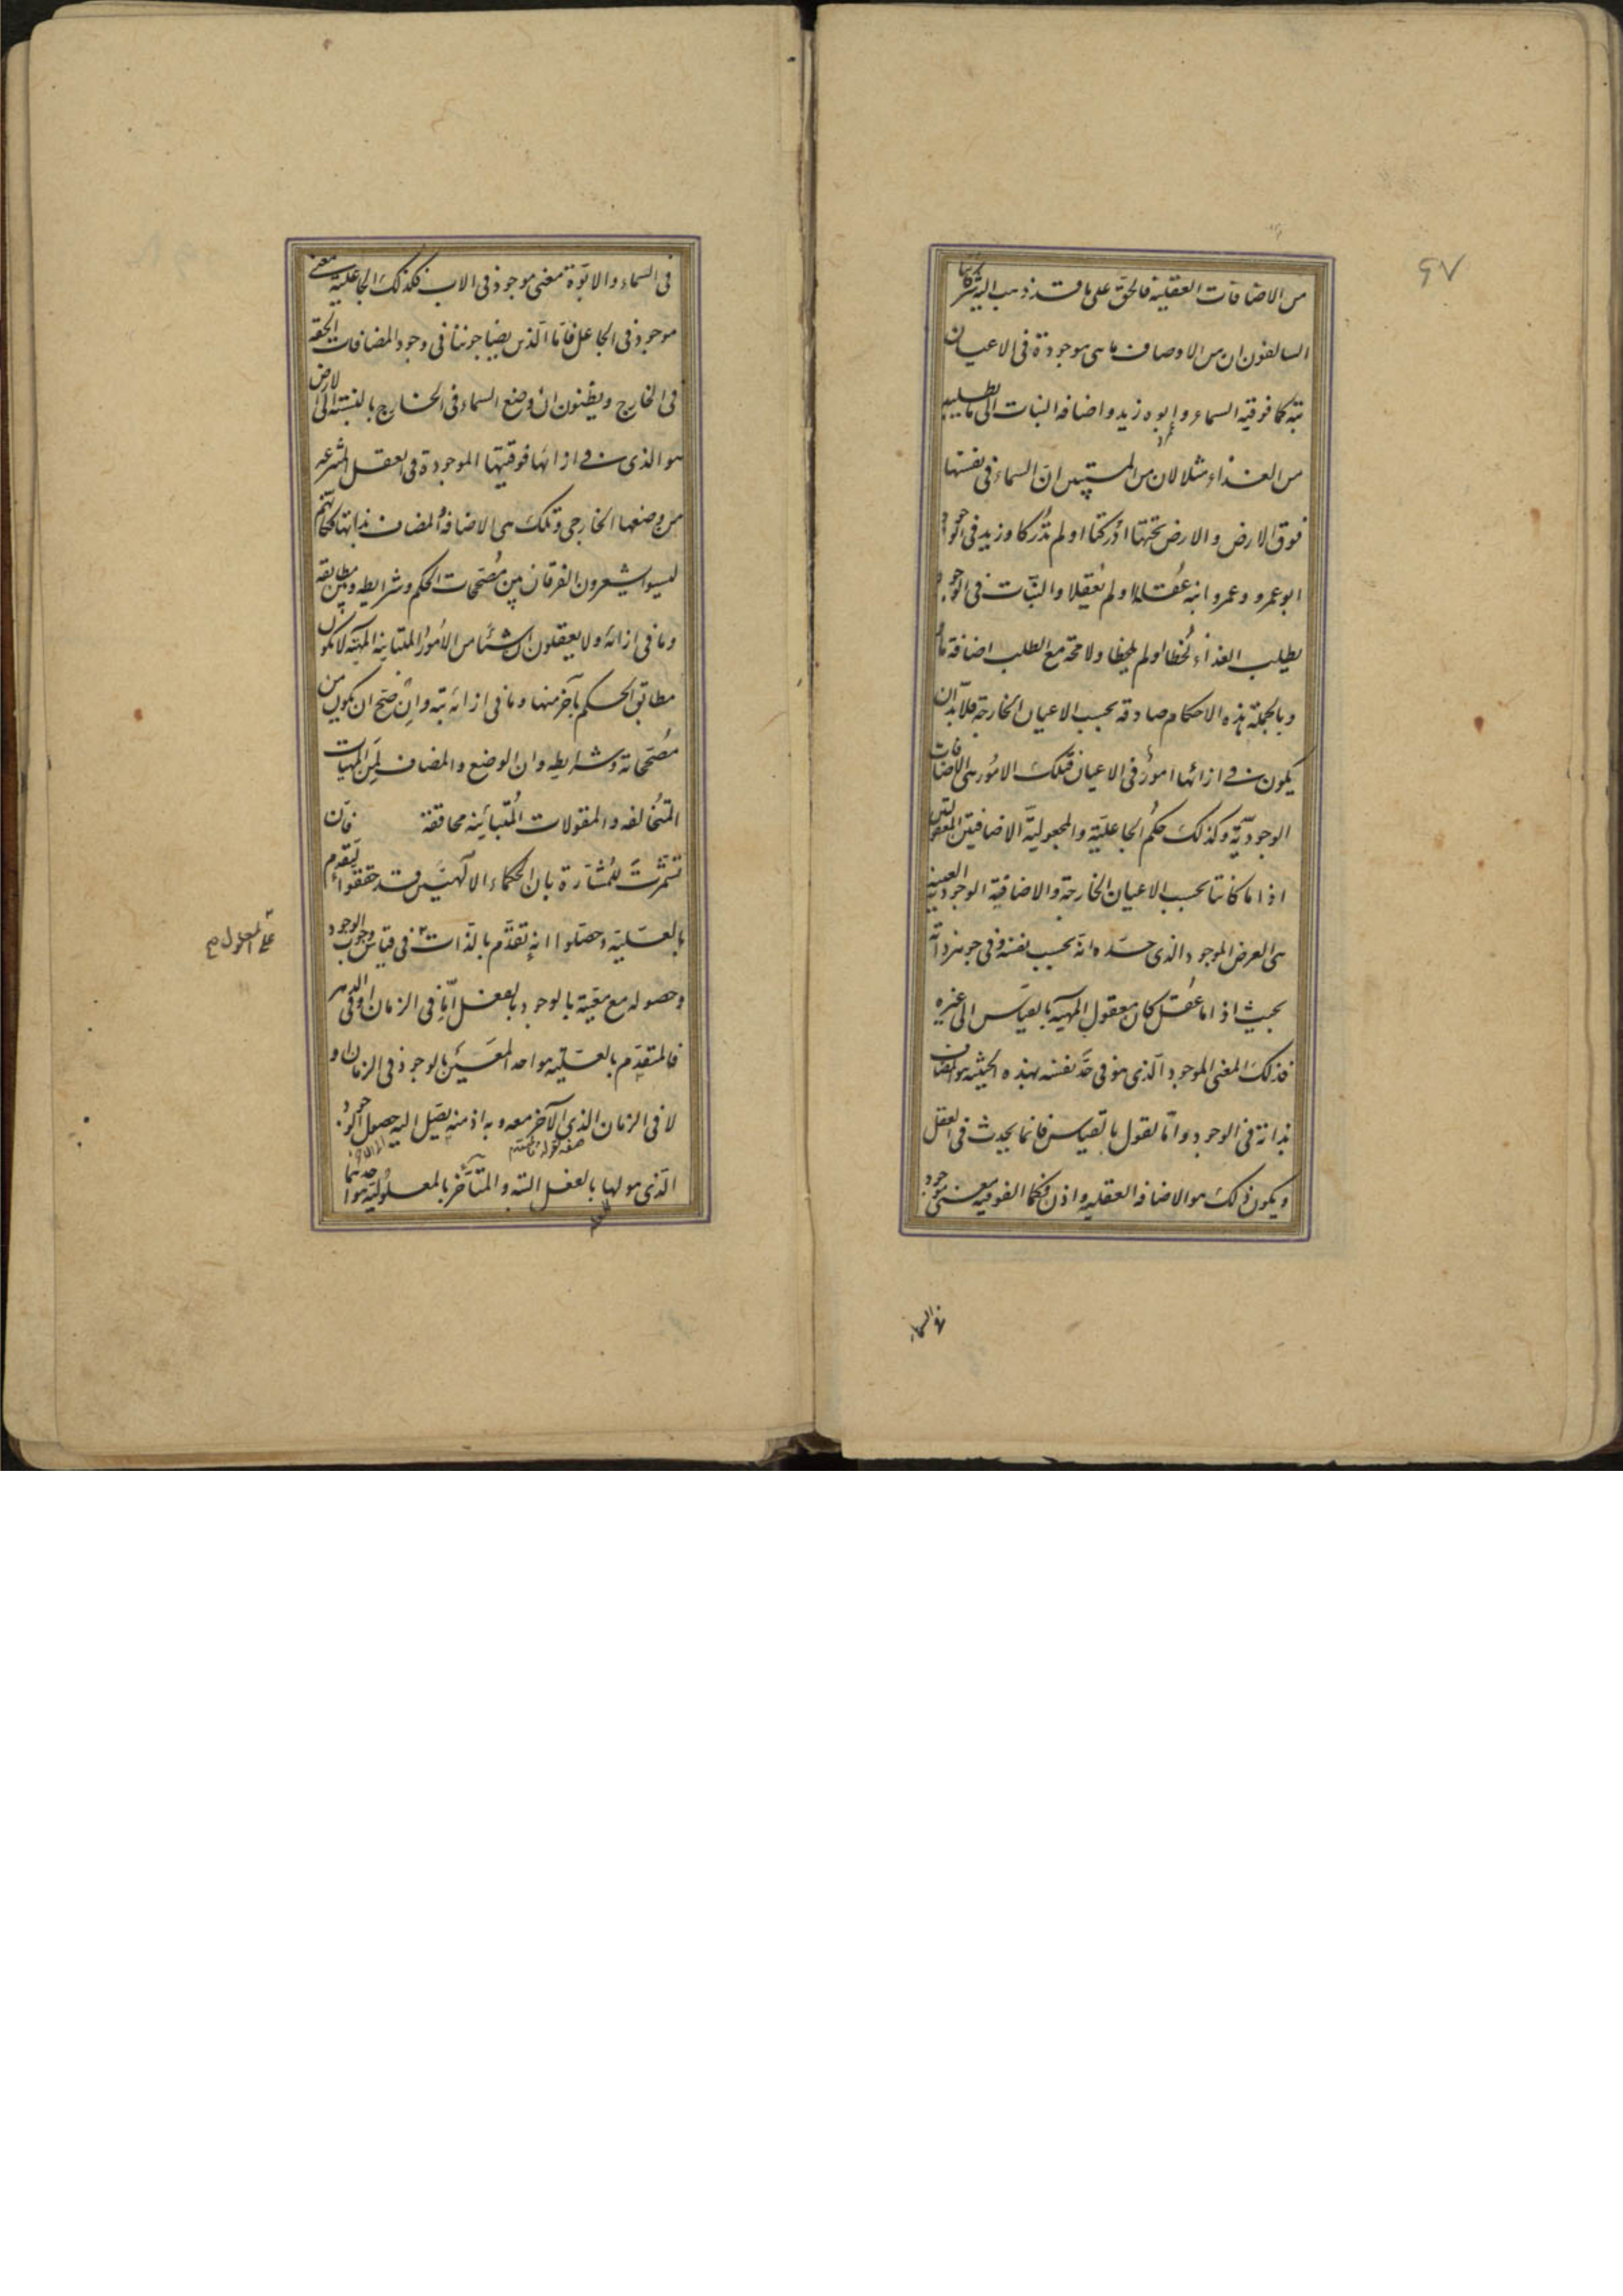 ٩٧
من الاضافات العقلية فالحق على ما قد ذهب اليه شركاؤنا
السالفون ان من الاوصاف ما هى موجودة فى الاعيان
بتة كما فوقيه السماء و ابوه زيد و اضافه النبات الى ما يطلبه
من الغذاء مثلا لان من المستبين ان السماء فى نفسها
فوق الارض و الارض تحتها ادركتا او لم تدركا و زيد فى الوجود
ابو عمرو و عمرو ابنه عقلا او لم يعقلا و النبات فى الوجود
يطلب الغذاء لحظا او لم يلحظا و لا محة مع الطلب اضافة ما
و بالجملة هذه الاحكام صادقه بحسب الاعيان الخارجة فلابد ان
يكون فى ازائها امور فى الاعيان فتلك الامور هى الاضافات
الوجودية و كذلك حكم الجاعلية و المجعولية الاضافيتين المعقولتين
اذا ما كانتا بحسب الاعيان الخارجة و الاضافية الوجودية العينية
هى العرض الموجود الذى حده انه بحسب نفسه و فى جوهر ذاته
بحيث اذا ما عقل كان معقول المهية بالقياس الى غيره
فذلك المعنى الموجود الذى هو فى حد نفسه بهذه الحيثية هو المضاف
بذاته فى الوجود و اما لقول بالقياس فانما يحدث فى العقل
و يكون ذلك هو الاضافه العقليه و اذن فكما الفوقيه معنى موجود
فى السماء
فى السماء و الابوة معنى موجود فى الاب فكذلك الجاعلية معنى
موجود فى الجاعل فاما الذين يضاجوننا فى وجود المضافات الحقه
فى الخارج و يظنون ان وضع السماء فى الخارج بالنسبة الى الارض
هو الذى فى ازائها فوقيتها الموجودة فى العقل المنتزعه
من وضعها الخارجى و تلك هى الاضافة المضاف بذاتها فكانهم
ليسوا يشعرون الفرقان بين مصححات الحكم و شرايطه و بين مطابقه
و ما فى ازائه و لا يعقلون ان شيئا من الامور المتباينة المهية لا يكون
مطابق الحكم باخر منها و ما فى ازائه بتة و ان صح ان يكون من
مصححاته و شرايطه و ان الوضع و المضاف لمن المهيات
المتخالفه و المقولات المتباينه محاققة فان
تشمرت للمشارة بان الحكماء الالهيين قد حققوا التقدم
بالعلية و حصلوا انه تقدم بالذات فى قياس وجوب الوجود
على المعلول صح
و حصوله مع معية بالوجود بالفعل اما فى الزمان او فى الدهر
فالمتقدم بالعلية هو احد المعين بالوجود فى الزمان او
لا فى الزمان الذى الاخر معه و به اذ منه يصل اليه حصول الوجود
الذى هو لها بالفعل البتة و المتاخر بالمعلولية هو احدهما